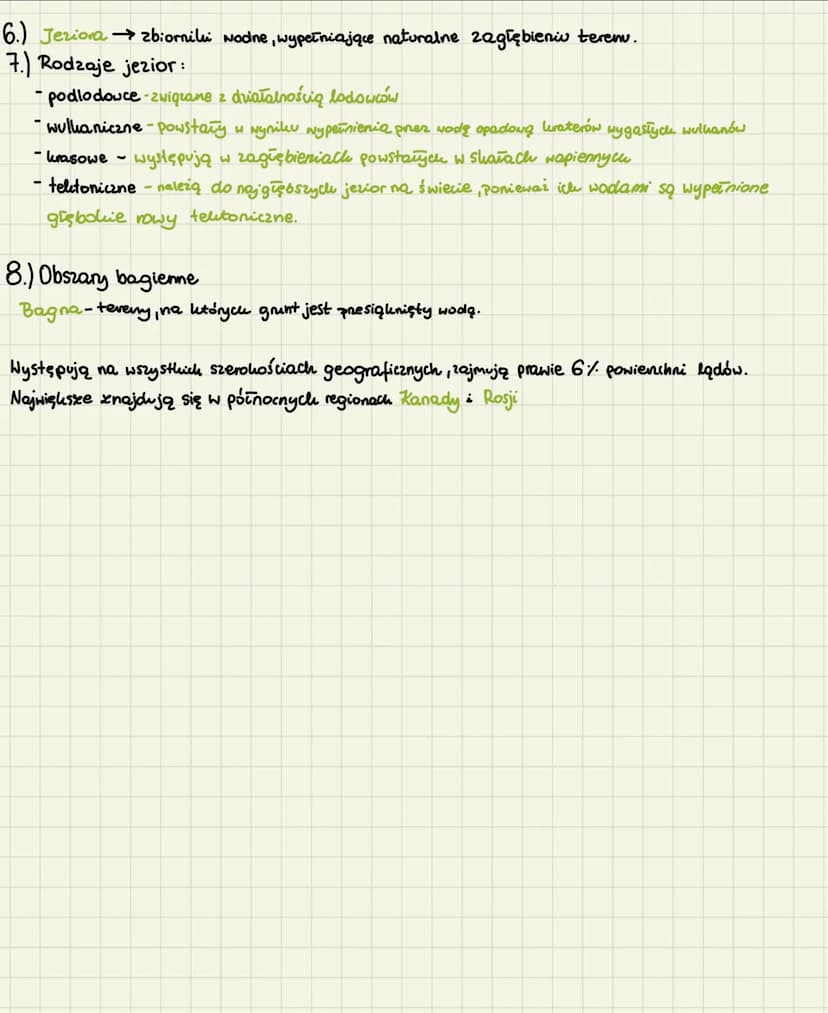 6.) Jeziora → zbiorniki wodne, wypełniające naturalne zagłębieniu terenu.
7.) Rodzaje jezior:
- podlodowce - związane z działalnością lodowców
- wulkaniczne - powstały w wyniku wypełnienia przez wodę opadową kraterów wygasłych wulkanów
- krasowe - występują w zagłębieniach powstałych w skałach wapiennych
- tektoniczne - należą do najgłębszych jezior na świecie, ponieważ ich wodami są wypełnione
głębokie rowy tektoniczne.
8.) Obszary bagienne
Bagna - tereny, na których grunt jest przesiąknięty wodą.
Występują na wszystkich szerokościach geograficznych, zajmują prawie 6% powierzchni lądów.
Największe znajdują się w północnych regionach Kanady i Rosji